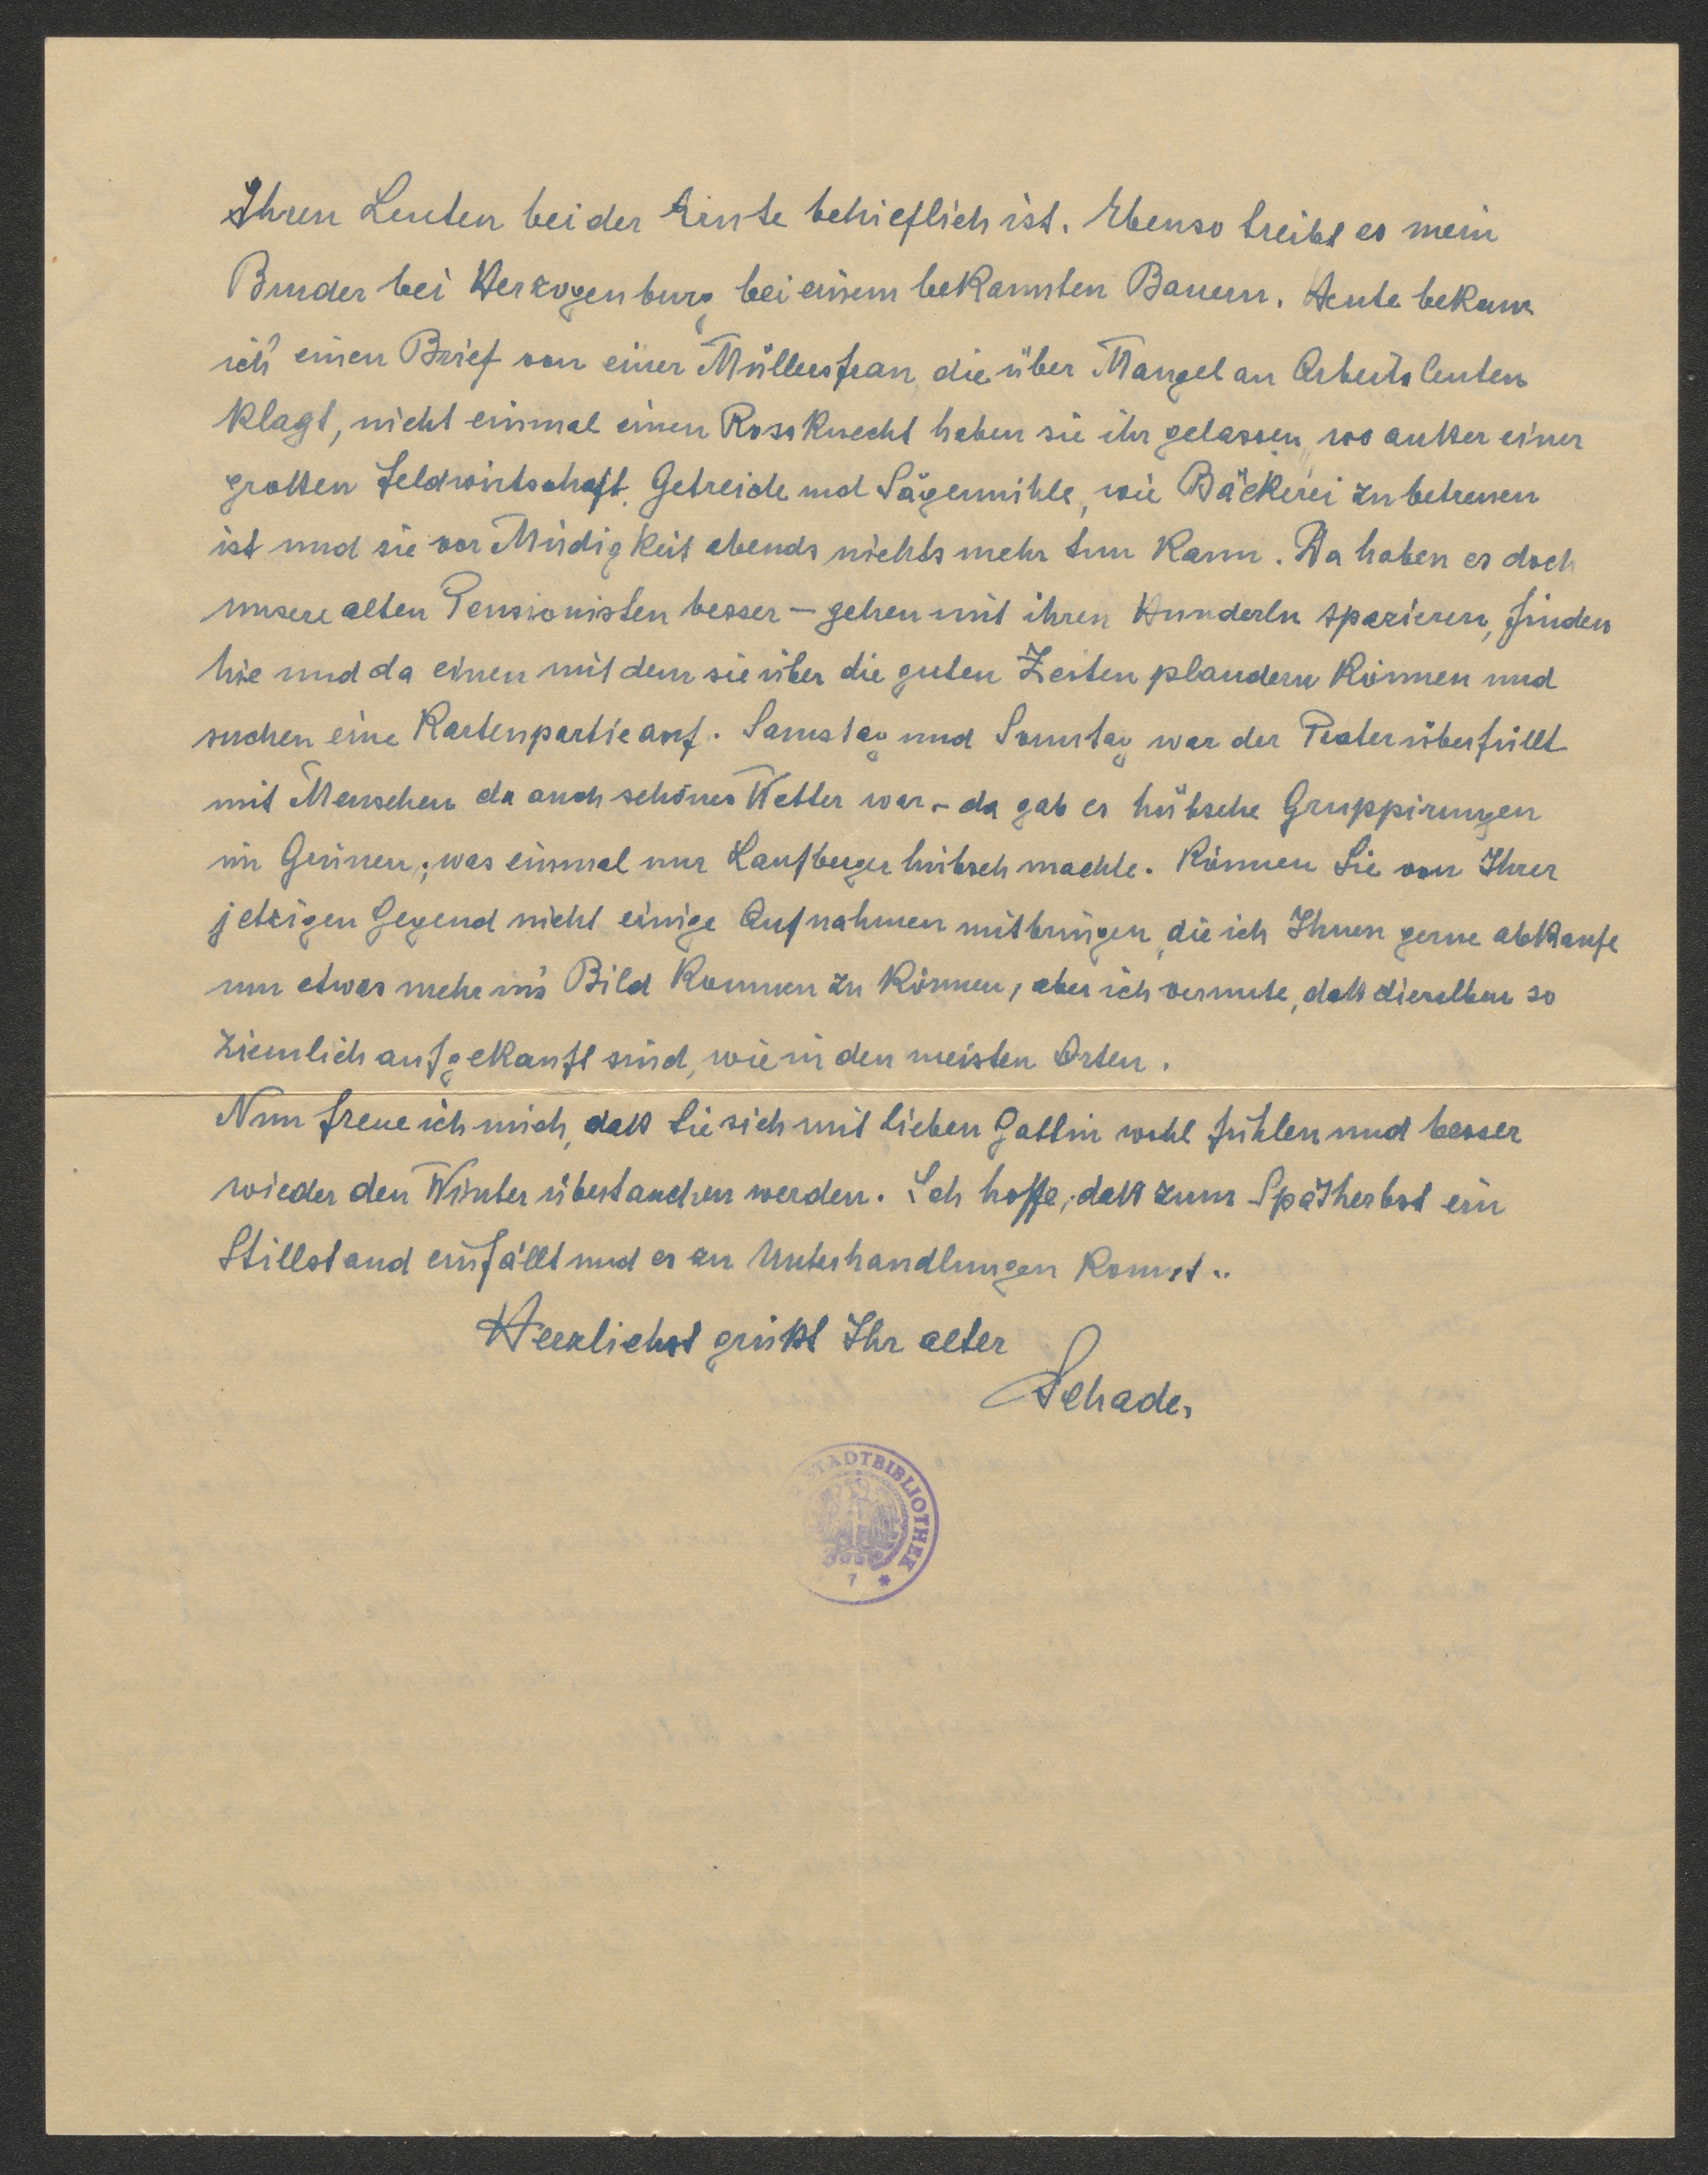 Ihren Leuten bei der Ernte behieflich ist. Ebenso treibt es mein
Bruder bei Herzogenburg bei einem bekannten Bauern. Heute bekam
ich einen Brief von einer Müllersfrau, die über Mangel an Arbeitsleuten
klagt, nicht einmal einen Rossknecht haben sie ihr gelassen, wo außer einer
großen Feldwirtschaft, Getreide und Sägemühle, wie Bäckerei zu betreuen
ist und sie vor Müdigkeit abends nichts mehr tun kann. Da haben es doch
unsere alten Pensionisten besser – gehen mit ihren Hunderln spazieren, finden
hie und da einen mit dem sie über die guten Zeiten plaudern können und
suchen eine Kartenpartie auf. Samstag und Sonntag war der Prater überfüllt
mit Menschen da auch schönes Wetter war – da gab es hübsche Gruppirungen
im Grünen; was einmal nur Laufberger hübsch machte. Können Sie von Ihrer
jetzigen Gegend nicht einige Aufnahmen mitbringen, die ich Ihnen gerne abkaufe
um etwas mehr in's Bild kommen zu können, aber ich vermute, daß dieselben so
ziemlich aufgekauft sind, wie in den meisten Orten.
Nun freue ich mich, daß Sie sich mit lieben Gattin wohl fühlen und besser
wieder den Winter überstanden werden. Ich hoffe, daß zum Spätherbst ein
Stillstand einfällt und es zu Unterhandlungen kommt..
Herzlichst grüßt Ihr alter
Schade.
STADTBIBLIOTHEK
7 *